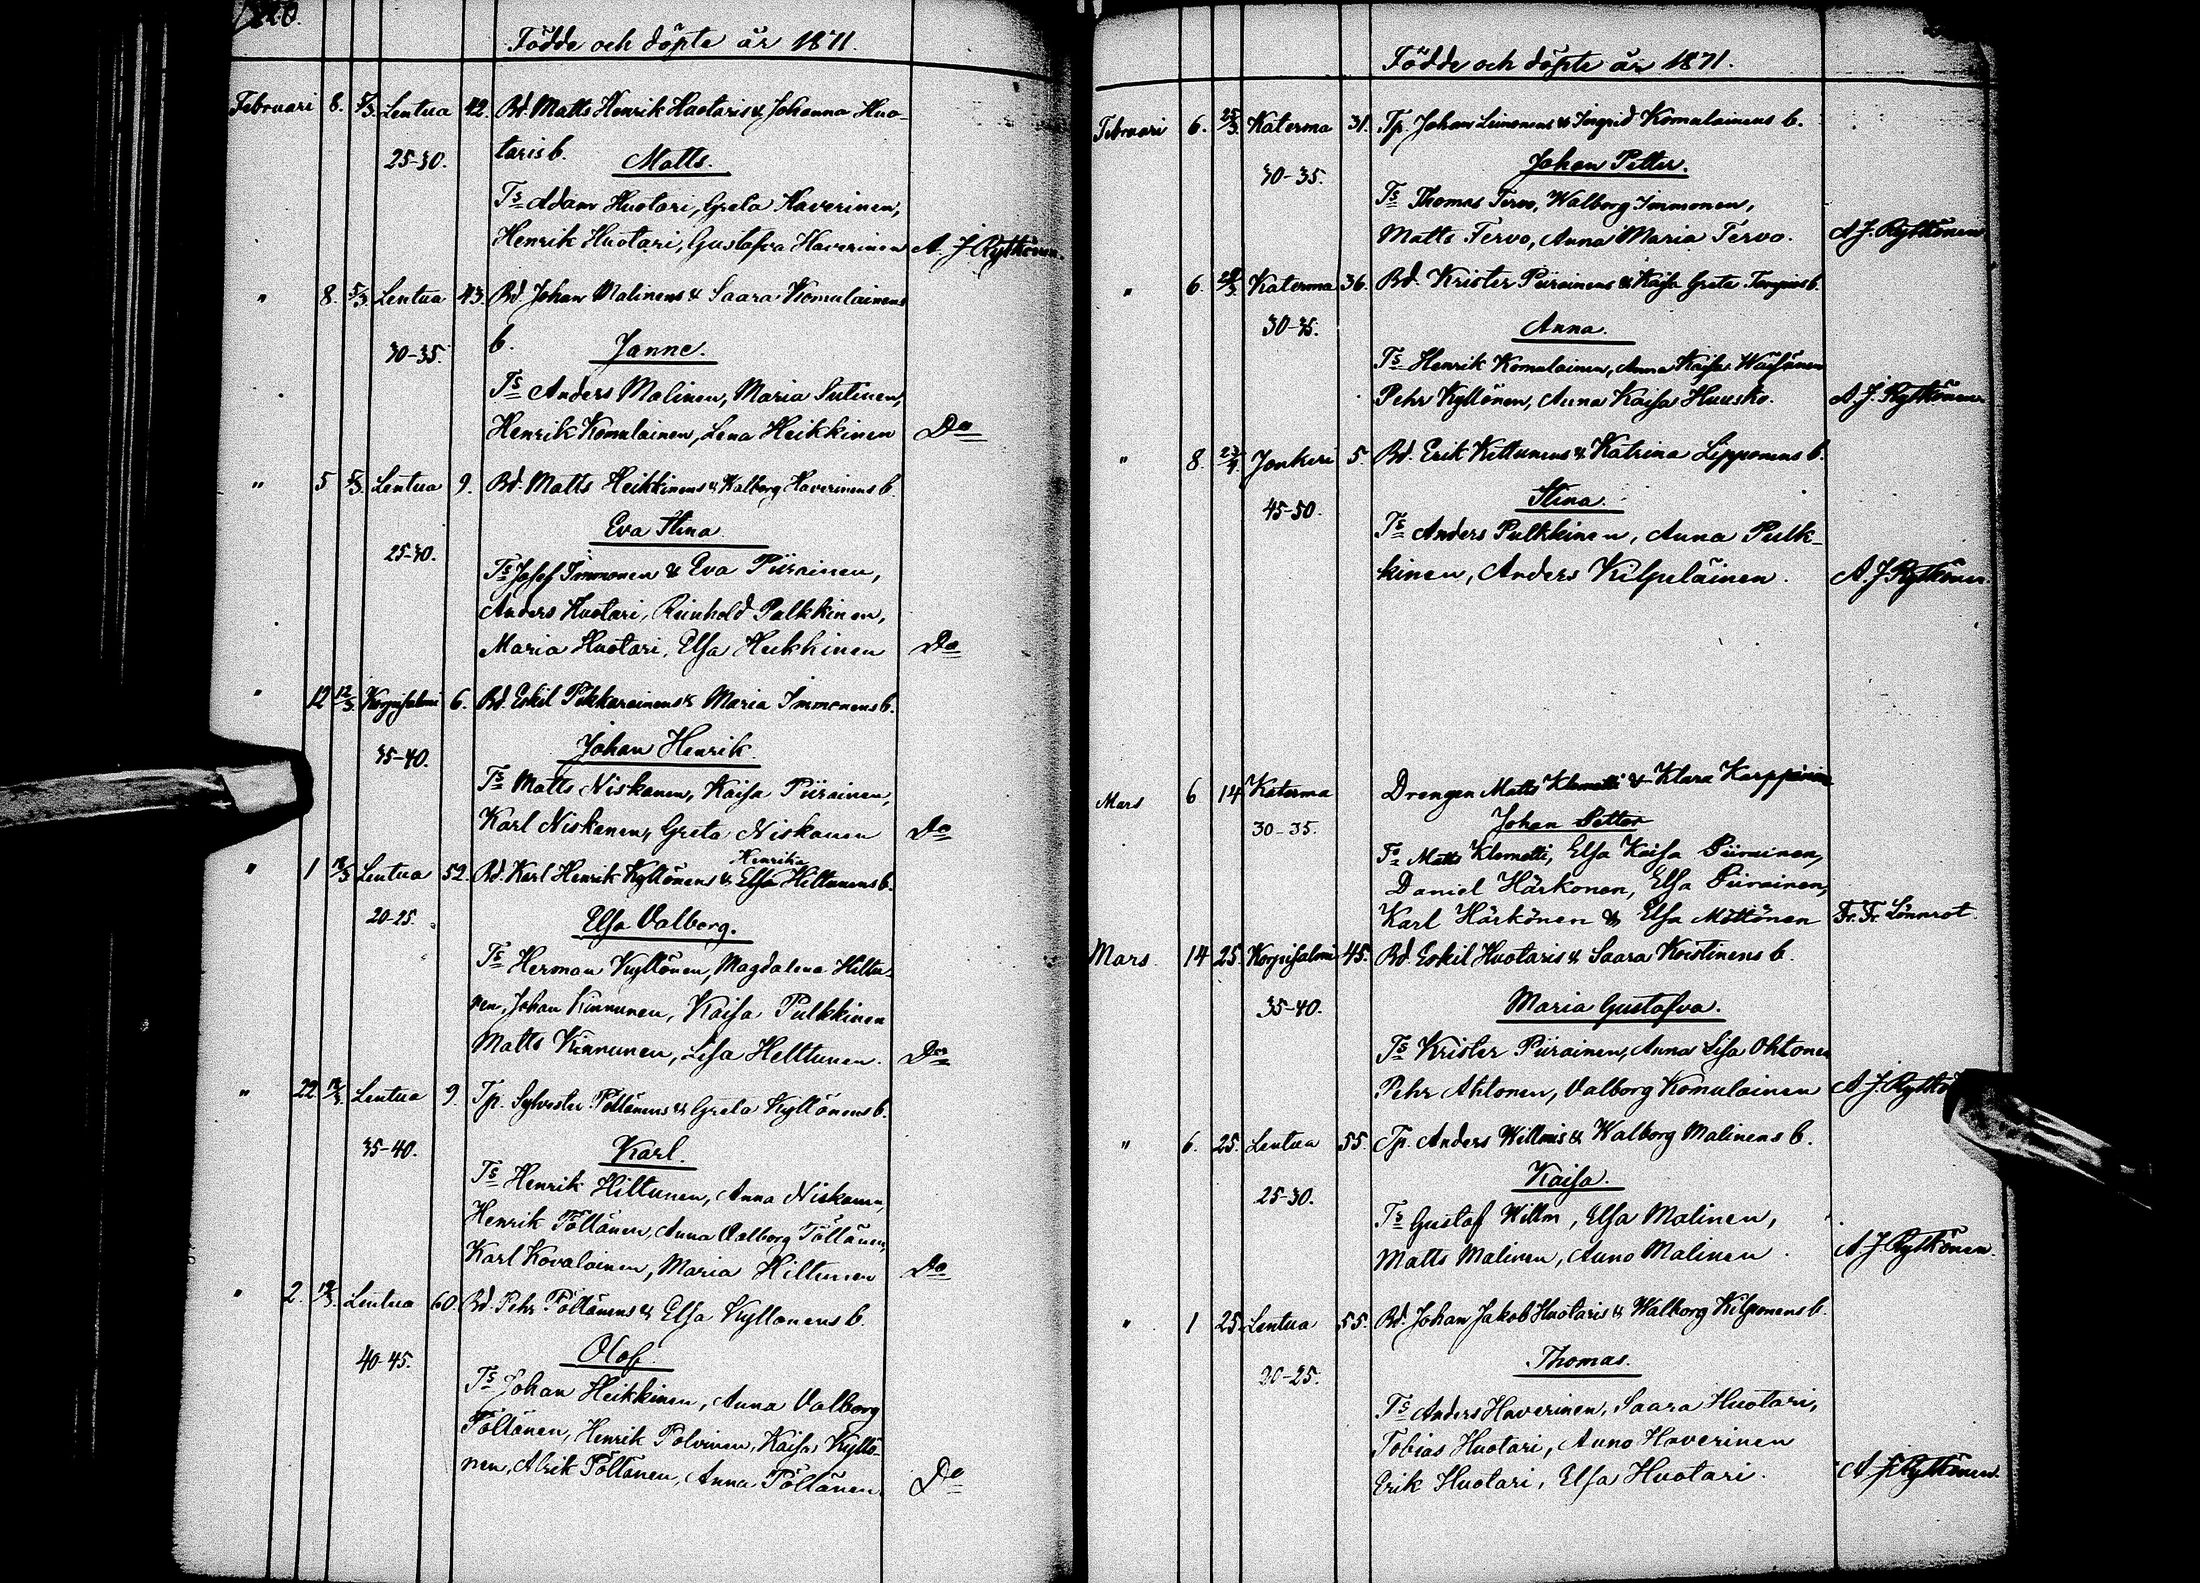 Födde och döpte år 1871.
Februari 8. 5/3. Lentua 42. Bd. Matts Henrik Huotaris & Johanna Huo-
25-30. taris b. Matts.
Ts Adam Huotari, Greta Haverinen,
Henrik Huotari, Gustafva Haverinen A. J. Rytkönen.
" 8. 5/3. Lentua 43. Bd. Johan Malinens & Saara Komulainens
30-35. b. Janne.
Ts Anders Malinen, Maria Sutinen,
Henrik Komulainen, Lena Heikkinen Do
" 5 5/3. Lentua 9. Bd. Matts Heikkinens & Walborg Haverinens b.
Eva Stina
25-30.
Ts Josef Immonen & Eva Piirainen,
Anders Huotari, Reinhold Pulkkinen,
Maria Huotari, Elsa Heikkinen Do
" 12 12/3. Korpisalmi 6. Bd. Eskil Pikkarainens & Maria Immonens b.
35-40. Johan Henrik
Ts Matts Niskanen, Kaisa Piirainen,
Karl Niskanen, Greta Niskanen Do
Henrika
" 1 Lentua 52. Bd. Karl Henrik Kyllönens & Elsa Hiltunens b.
20-25. Elsa Valborg.
Ts Herman Kyllönen, Magdalena Hiltu-
nen, Johan Kinnunen, Kaisa Pulkkinen
Matts Kinnunen, Lisa Helttunen. Do
" 22 Lentua 9. Tp. Sylvester Pöllänens & Greta Kyllönens b.
35-40. Karl.
Ts Henrik Hiltunen, Anna Niskanen,
Henrik Pöllänen, Anna Valborg Pöllänen,
Karl Kovalainen, Maria Hiltunen Do
" 2. Lentua 60. Bd. Pehr Pöllänens & Elsa Kyllönens b.
40-45. Olof.
Ts Johan Heikkinen, Anna Valborg
Pöllänen, Henrik Polvinen, Kaisa Kyllö-
nen, Alrik Pöllänen, Anna Pöllänen. Do
Födde och döpte år 1871.
Februari 6. 25/3. Katerma 31. Tp. Johan Leinonens & Ingrid Komulainens b.
30-35. Johan Petter.
Ts Thomas Tervo, Walborg Immonen,
Matts Tervo, Anna Maria Tervo. A. J. Rytkönen
" 6. Katerma 36. Bd. Krister Piirainens & Kaisa Greta b.
30-35. Anna.
Ts Henrik Komulainen, Anna Kaisa Wäisänen
Pehr Kyllönen, Anna Kaisa Huusko. A. J. Rytkönen
" 8. Jonkeri 5. Bd. Erik Kettunens & Katrina Lipponens b.
45-50. Stina.
Ts Anders Pulkkinen, Anna Pulk-
kinen, Anders Kilpeläinen. A. J. Rytkönen.
Mars 6 14 Katerma Drengen Matts Klemetti & Klara Karppinen
30-35. Johan Petter
Ts Matts Klemetti, Elsa Kaisa Piirainen,
Daniel Härkönen, Elsa Piirainen,
Karl Härkönen & Elsa Möttönen Fr. Fr. Lönnrot.
Mars. 14 25. Korpisalmi 45. Bd. Eskil Huotaris & Saara Koistinens b.
35-40. Maria Gustafva.
Ts Krister Piirainen, Anna Lisa Ohtonen
Pehr Ahtonen, Valborg Komulainen A. J. Rytkö
" 6. 25. Lentua 55. Tp. Anders Willmis & Walborg Malinens b.
25-30. Kaisa.
Ts Gustaf Willm, Elsa Malinen,
Matts Malinen, Auno Malinen. A. J. Rytkönen.
" 1 25. Lentua 55. Bd. Johan Jakob Huotaris & Walborg Kilponens b.
20-25. Thomas.
Ts Anders Haverinen, Saara Huotari,
Tobias Huotari, Auno Haverinen
Erik Huotari, Elsa Huotari. A. J. Rytkönen.